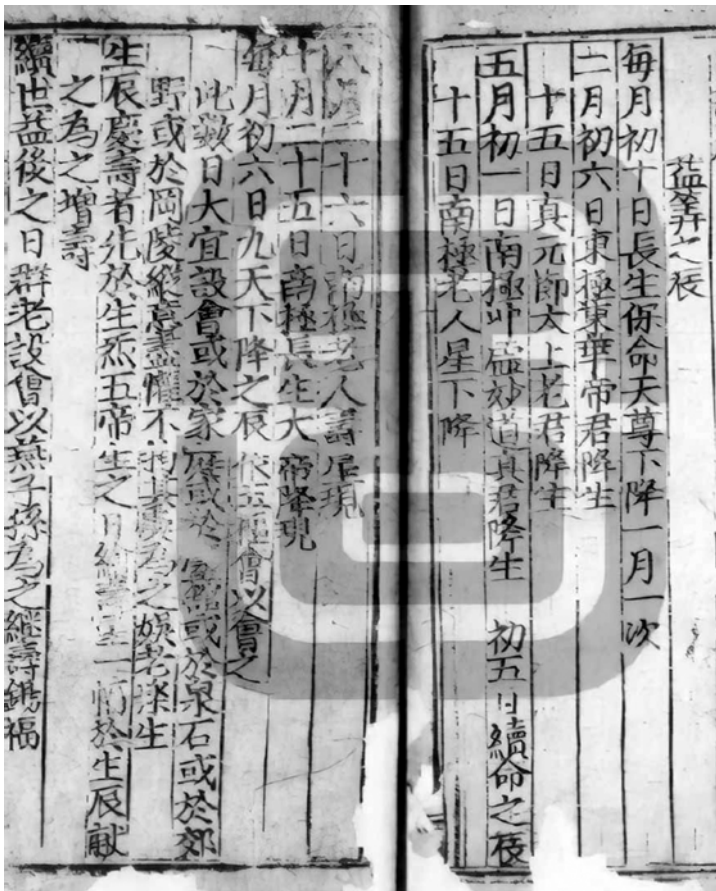 益筭之辰
每月初十日長生保命天尊下降一月一次
二月初六日東極東華帝君降生
十五日真元節太上老君降生
五月初一日南極 妙道真君降生 初五日續命之辰
十五日南極老人星下降
八月二十六日南極老人壽星現
十月二十五日南極長生大帝降現
每月初六日九天下降之辰依五極會以會之
此數日大宜設會或於家 或於 或於泉石或於郊
野或於岡陵縱意盡懽不 為之娛老樂生
生辰慶壽者先於生炁五帝生之日繪壽星一幅於生辰献
之為之增壽
續世益後之日群老設會以燕子孫為之繼壽錫福